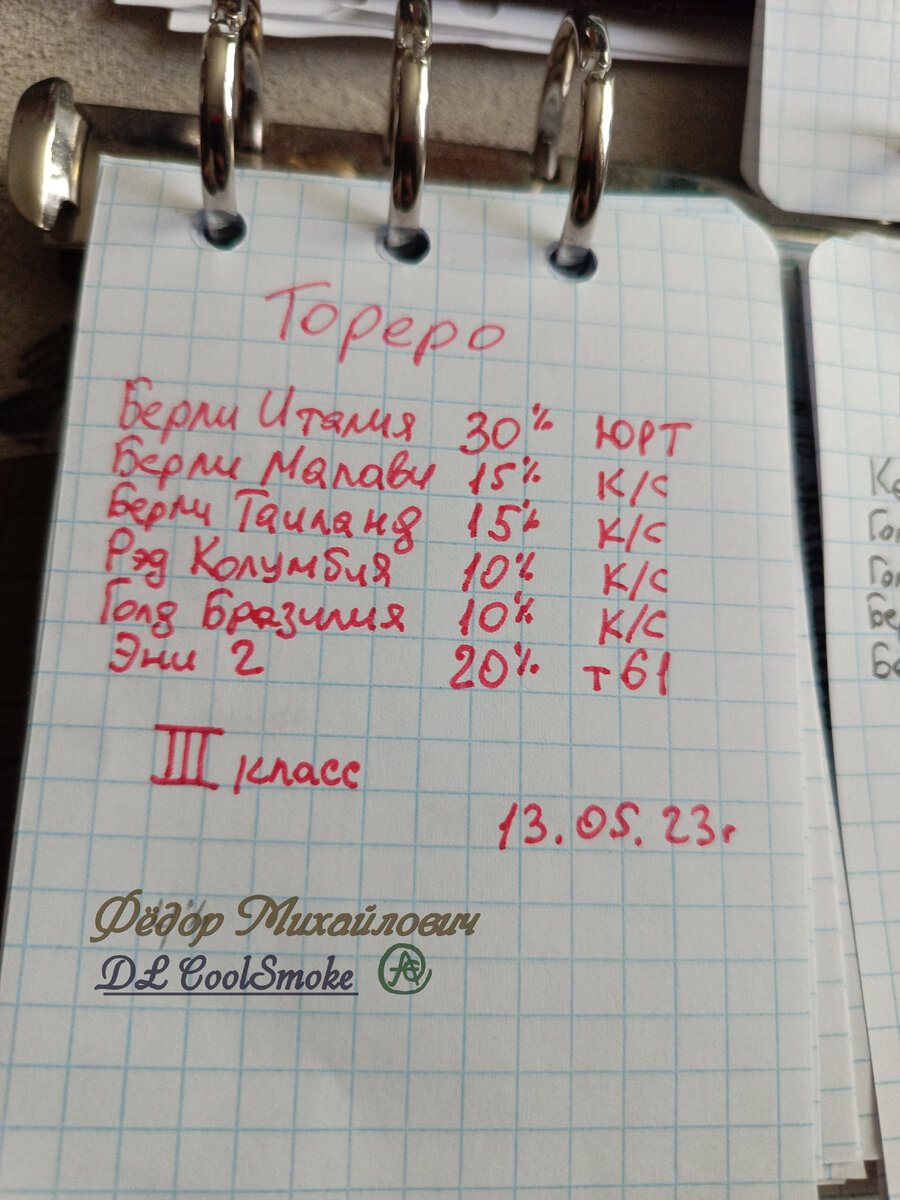 Тореро
Берли Италия 30% ЮРТ
Берли Малави 15% К/С
Берли Таиланд 15% К/С
Рэд Колумбия 10% К/С
Голд Бразилия 10% К/С
Эни 2 20% т61
III класс
13.05.23г
Фёдор Михайлович
DL CoolSmoke